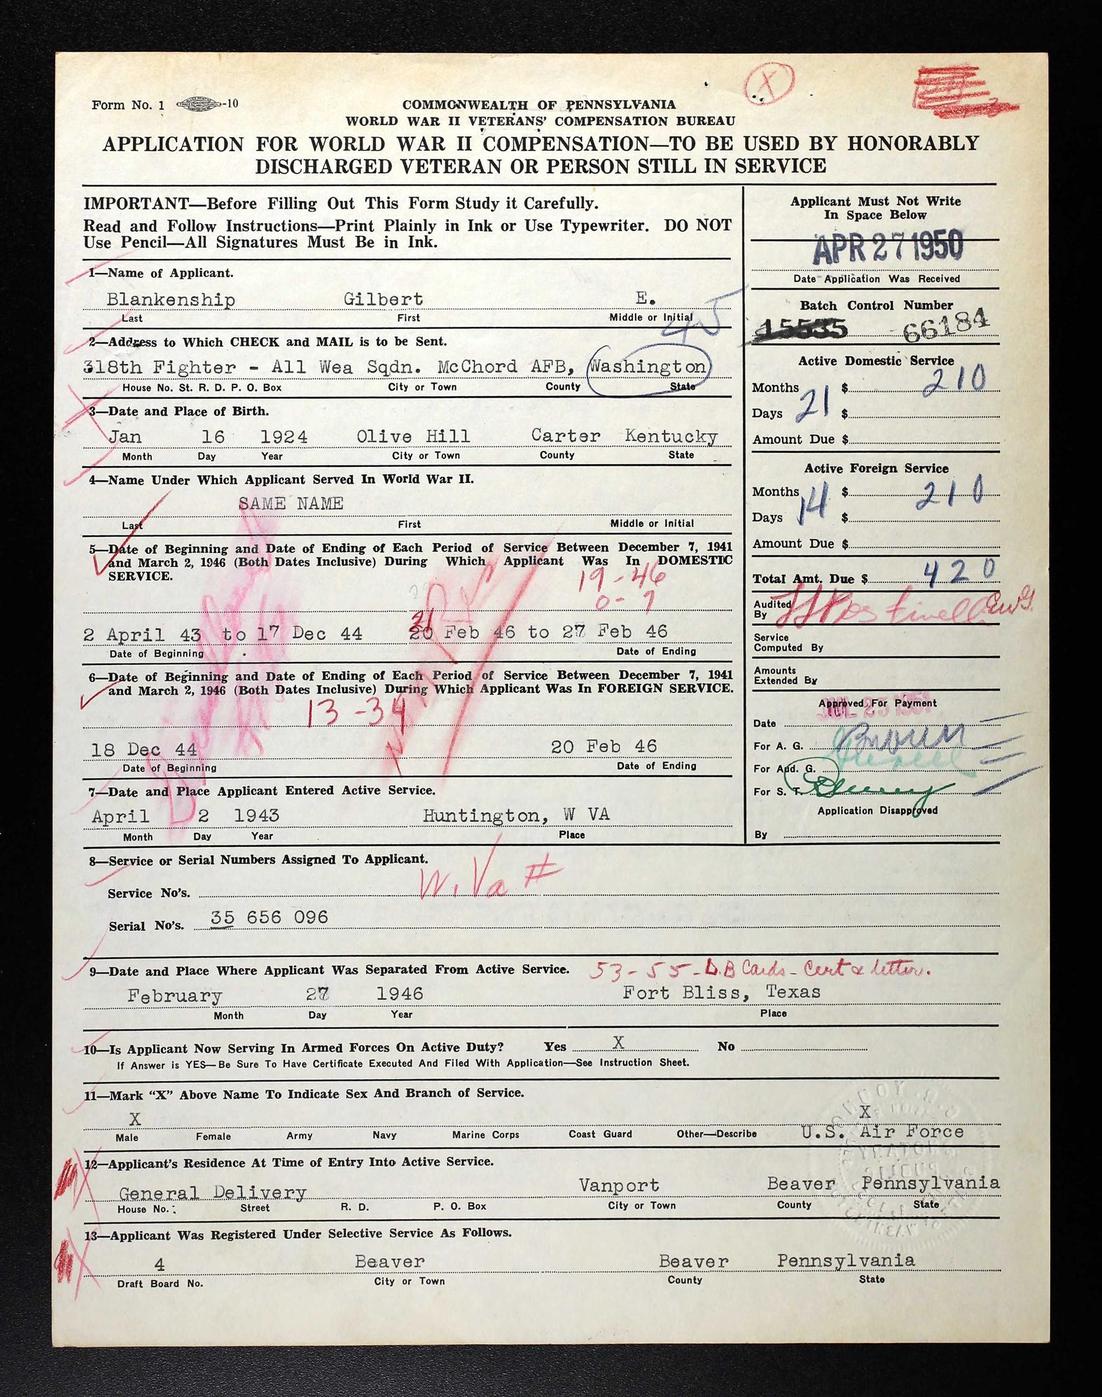 Form No. 1 -10
COMMONWEALTH OF PENNSYLVANIA
WORLD WAR II VETERANS' COMPENSATION BUREAU
APPLICATION FOR WORLD WAR II COMPENSATION—TO BE USED BY HONORABLY
DISCHARGED VETERAN OR PERSON STILL IN SERVICE
IMPORTANT—Before Filling Out This Form Study it Carefully.
Read and Follow Instructions—Print Plainly in Ink or Use Typewriter. DO NOT
Use Pencil—All Signatures Must Be in Ink.
1—Name of Applicant.
Blankenship Gilbert E.
Last First Middle or Initial
45
2—Address to Which CHECK and MAIL is to be Sent.
318th Fighter - All Wea Sqdn. McChord AFB, Washington
House No. St. R. D. P. O. Box City or Town County State
3—Date and Place of Birth.
Jan 16 1924 Olive Hill Carter Kentucky
Month Day Year City or Town County State
4—Name Under Which Applicant Served In World War II.
SAME NAME
Last First Middle or Initial
5—Date of Beginning and Date of Ending of Each Period of Service Between December 7, 1941
and March 2, 1946 (Both Dates Inclusive) During Which Applicant Was In DOMESTIC
SERVICE.
19-46
0-7
21
2 April 43 to 17 Dec 44 20 Feb 46 to 27 Feb 46
Date of Beginning Date of Ending
6—Date of Beginning and Date of Ending of Each Period of Service Between December 7, 1941
and March 2, 1946 (Both Dates Inclusive) During Which Applicant Was In FOREIGN SERVICE.
13-34
18 Dec 44 20 Feb 46
Date of Beginning Date of Ending
7—Date and Place Applicant Entered Active Service.
April 2 1943 Huntington, W VA
Month Day Year Place
Applicant Must Not Write
In Space Below
APR 27 1950
Date Application Was Received
Batch Control Number
15535 66184
Active Domestic Service
Months $ 210
Days 21 $
Amount Due $
Active Foreign Service
Months $ 210
Days 14 $
Amount Due $
Total Amt. Due $ 420
Audited
By
Service
Computed By
Amounts
Extended By
Approved For Payment
Date
For A. G. Brown
For Aud. G.
For S. T.
Application Disapproved
By
8—Service or Serial Numbers Assigned To Applicant.
W. Va #
Service No's.
Serial No's. 35 656 096
9—Date and Place Where Applicant Was Separated From Active Service. 53-55-D.B Cards-Cert & letter.
February 27 1946 Fort Bliss, Texas
Month Day Year Place
10—Is Applicant Now Serving In Armed Forces On Active Duty? Yes X No
If Answer is YES—Be Sure To Have Certificate Executed And Filed With Application—See Instruction Sheet.
11—Mark "X" Above Name To Indicate Sex And Branch of Service.
X X
U.S. Air Force
Male Female Army Navy Marine Corps Coast Guard Other—Describe
12—Applicant's Residence At Time of Entry Into Active Service.
General Delivery Vanport Beaver Pennsylvania
House No. Street R. D. P. O. Box City or Town County State
13—Applicant Was Registered Under Selective Service As Follows.
4 Beaver Beaver Pennsylvania
Draft Board No. City or Town County State